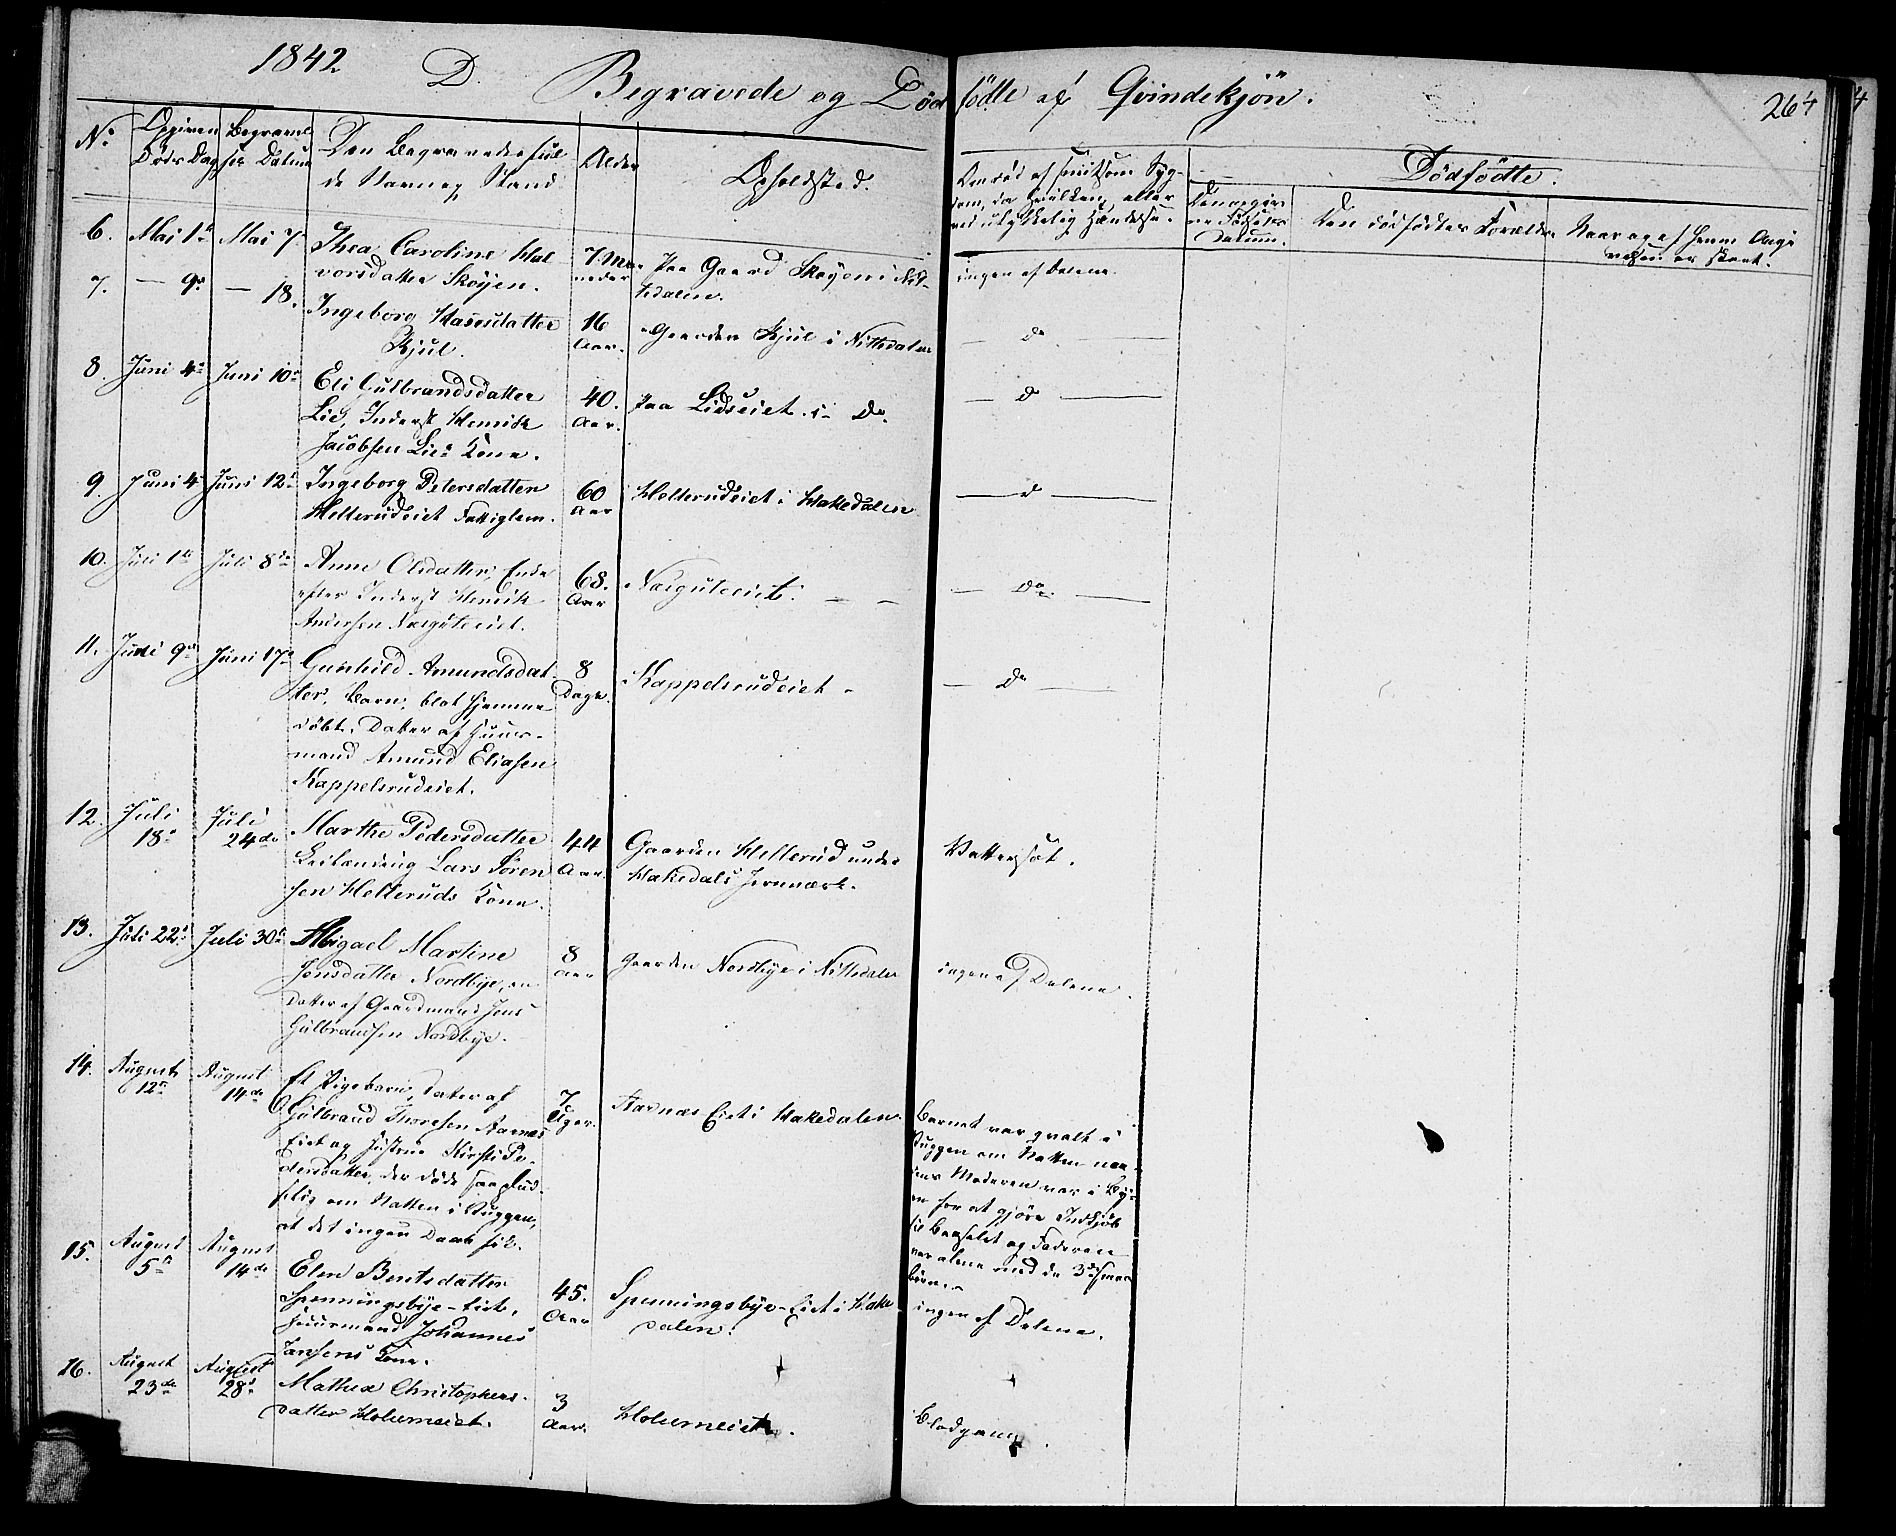 1842 D. Begravede og Dødfødte af Qvindekjön. 264
No
Opgiven Døds Dag
Begravelses Datum
Den Begravedes fulde Navn og Stand
Alder
Opholdsted.
Om død af smitsom Sygdom, da hvilken, eller ved ulykkelig Hændelse.
Dødfødte.
Den opgivne Fødsels Datum.
Den dødfødtes Forældre
Naar og af hvem Angivelsen er skeet.
6. Mai 1te Mai 7. Thea Caroline Hal-
vorsdatter Skøyen.
7 Maaneder
Paa Gaard Skøyen i Nit-
tedalen.
ingen af Delene.
7. — 9de — 18. Ingeborg Hansdatter
Kjul.
16 Aar.
Gaarden Kjul i Nittedalen
— do —
8. Juni 4de Juni 10de Eli Gulbrandsdatter
Lie, Inderst Henrik
Jacobsen Lies Kone.
40. Aar.
Paa Lidseiet i Do
— d —
9. Juni 4 Juni 12te Ingeborg Petersdatter
Hellerudeiet Fattiglem.
60 Aar
Hellerudeiet i Hakedalen
— d —
10. Juli 1te Juli 8de Anne Olsdatter, Enke
efter Inderst Henrik
Andersen
68. Aar
— do —
11. Juni 9de Juni 17de Gunhild Amundsdat-
ter, Barn, blot hjemme
døbt, Datter af Huus-
mand Amund Eliasen
Kappelsrudeiet.
8 Dage.
Kappelsrudeiet
— do —
12. Juli 18de Juli 24de Marthe Pedersdatter
Leilænding Lars Søren
sen Helleruds Kone.
44 Aar.
Gaarden Hellerud under
Hakedals Jernværk.
Vattersot.
13. Juli 22de Juli 30te Abigael Martine
Jensdatter Nordbye, en
Datter af Gaardmand Jens
Gulbrandsen Nordbye.
8 Aar
Gaarden Nordbye i Nittedalen
ingen af Delene.
14. August 12te August 14de Et Pigebarn, Datter af
Gulbrand Thoresen Aarnæs
Eiet og Hustrue Kirsti Pe-
dersdatter, der døde saa plud-
selig om Natten i Vuggen,
at det ingen Daab fik.
7 Uger.
Aarnæs Eiet i Hakedalen.
Barnet var qvalt i
Vuggen om Natten me-
dens Moderen var i By-
en for at gjøre Indkjøb
til Barselet og Faderen
var alene med de 3de smaa
Børn.
15. August 5te August 14de Elen Berntsdatter
Spenningsbye-Eiet,
Huusmand Johannes
Jansens Kone.
45. Aar
Spenningsbye-Eiet i Hake-
dalen.
ingen af Delene.
16. August 23de August 28de Mathea Christophers-
datter Holumeiet.
3 Aar.
Holumeiet.
Blodgang.